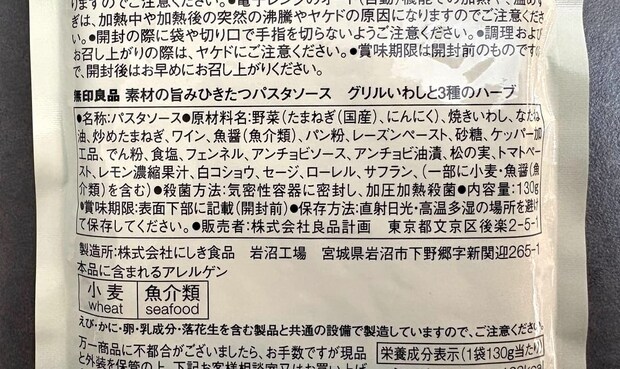 りますのでご注意ください。●電子レンジのオート(自動)機能での加熱や、温めす
ぎは、加熱中や加熱後の突然の沸騰やヤケドの原因になりますのでご注意ください。
●開封の際に袋や切り口で手指を切らないようご注意ください。●調理および
お召し上がりの際は、ヤケドにご注意ください。●賞味期限は開封前のものですの
で、開封後はお早めにお召し上がりください。
無印良品 素材の旨みひきたつパスタソース グリルいわしと3種のハーブ
●名称:パスタソース●原材料名:野菜(たまねぎ(国産)、にんにく)、焼きいわし、なたね
油、炒めたまねぎ、ワイン、魚醤(魚介類)、パン粉、レーズンペースト、砂糖、ケッパー加
工品、でん粉、食塩、フェンネル、アンチョビソース、アンチョビ油漬、松の実、トマトペー
スト、レモン濃縮果汁、白コショウ、セージ、ローレル、サフラン、(一部に小麦・魚醤(魚
介類)を含む)●殺菌方法:気密性容器に密封し、加圧加熱殺菌●内容量:130g
●賞味期限:表面下部に記載(開封前)●保存方法:直射日光・高温多湿の場所を避け
て保存してください。●販売者:株式会社良品計画 東京都文京区後楽2-5-1
製造所:株式会社にしき食品 岩沼工場 宮城県岩沼市下野郷字新関迎265-1
本品に含まれるアレルゲン
小麦 魚介類
wheat seafood
えび・かに・卵・乳成分・落花生を含む製品と共通の設備で製造していますので、ご注意ください。
万一商品に不都合がございましたら、お手数ですが現品
と外装を保管の上、下記お客様相談室又はお買い上げ
栄養成分表示(1袋130g当たり)